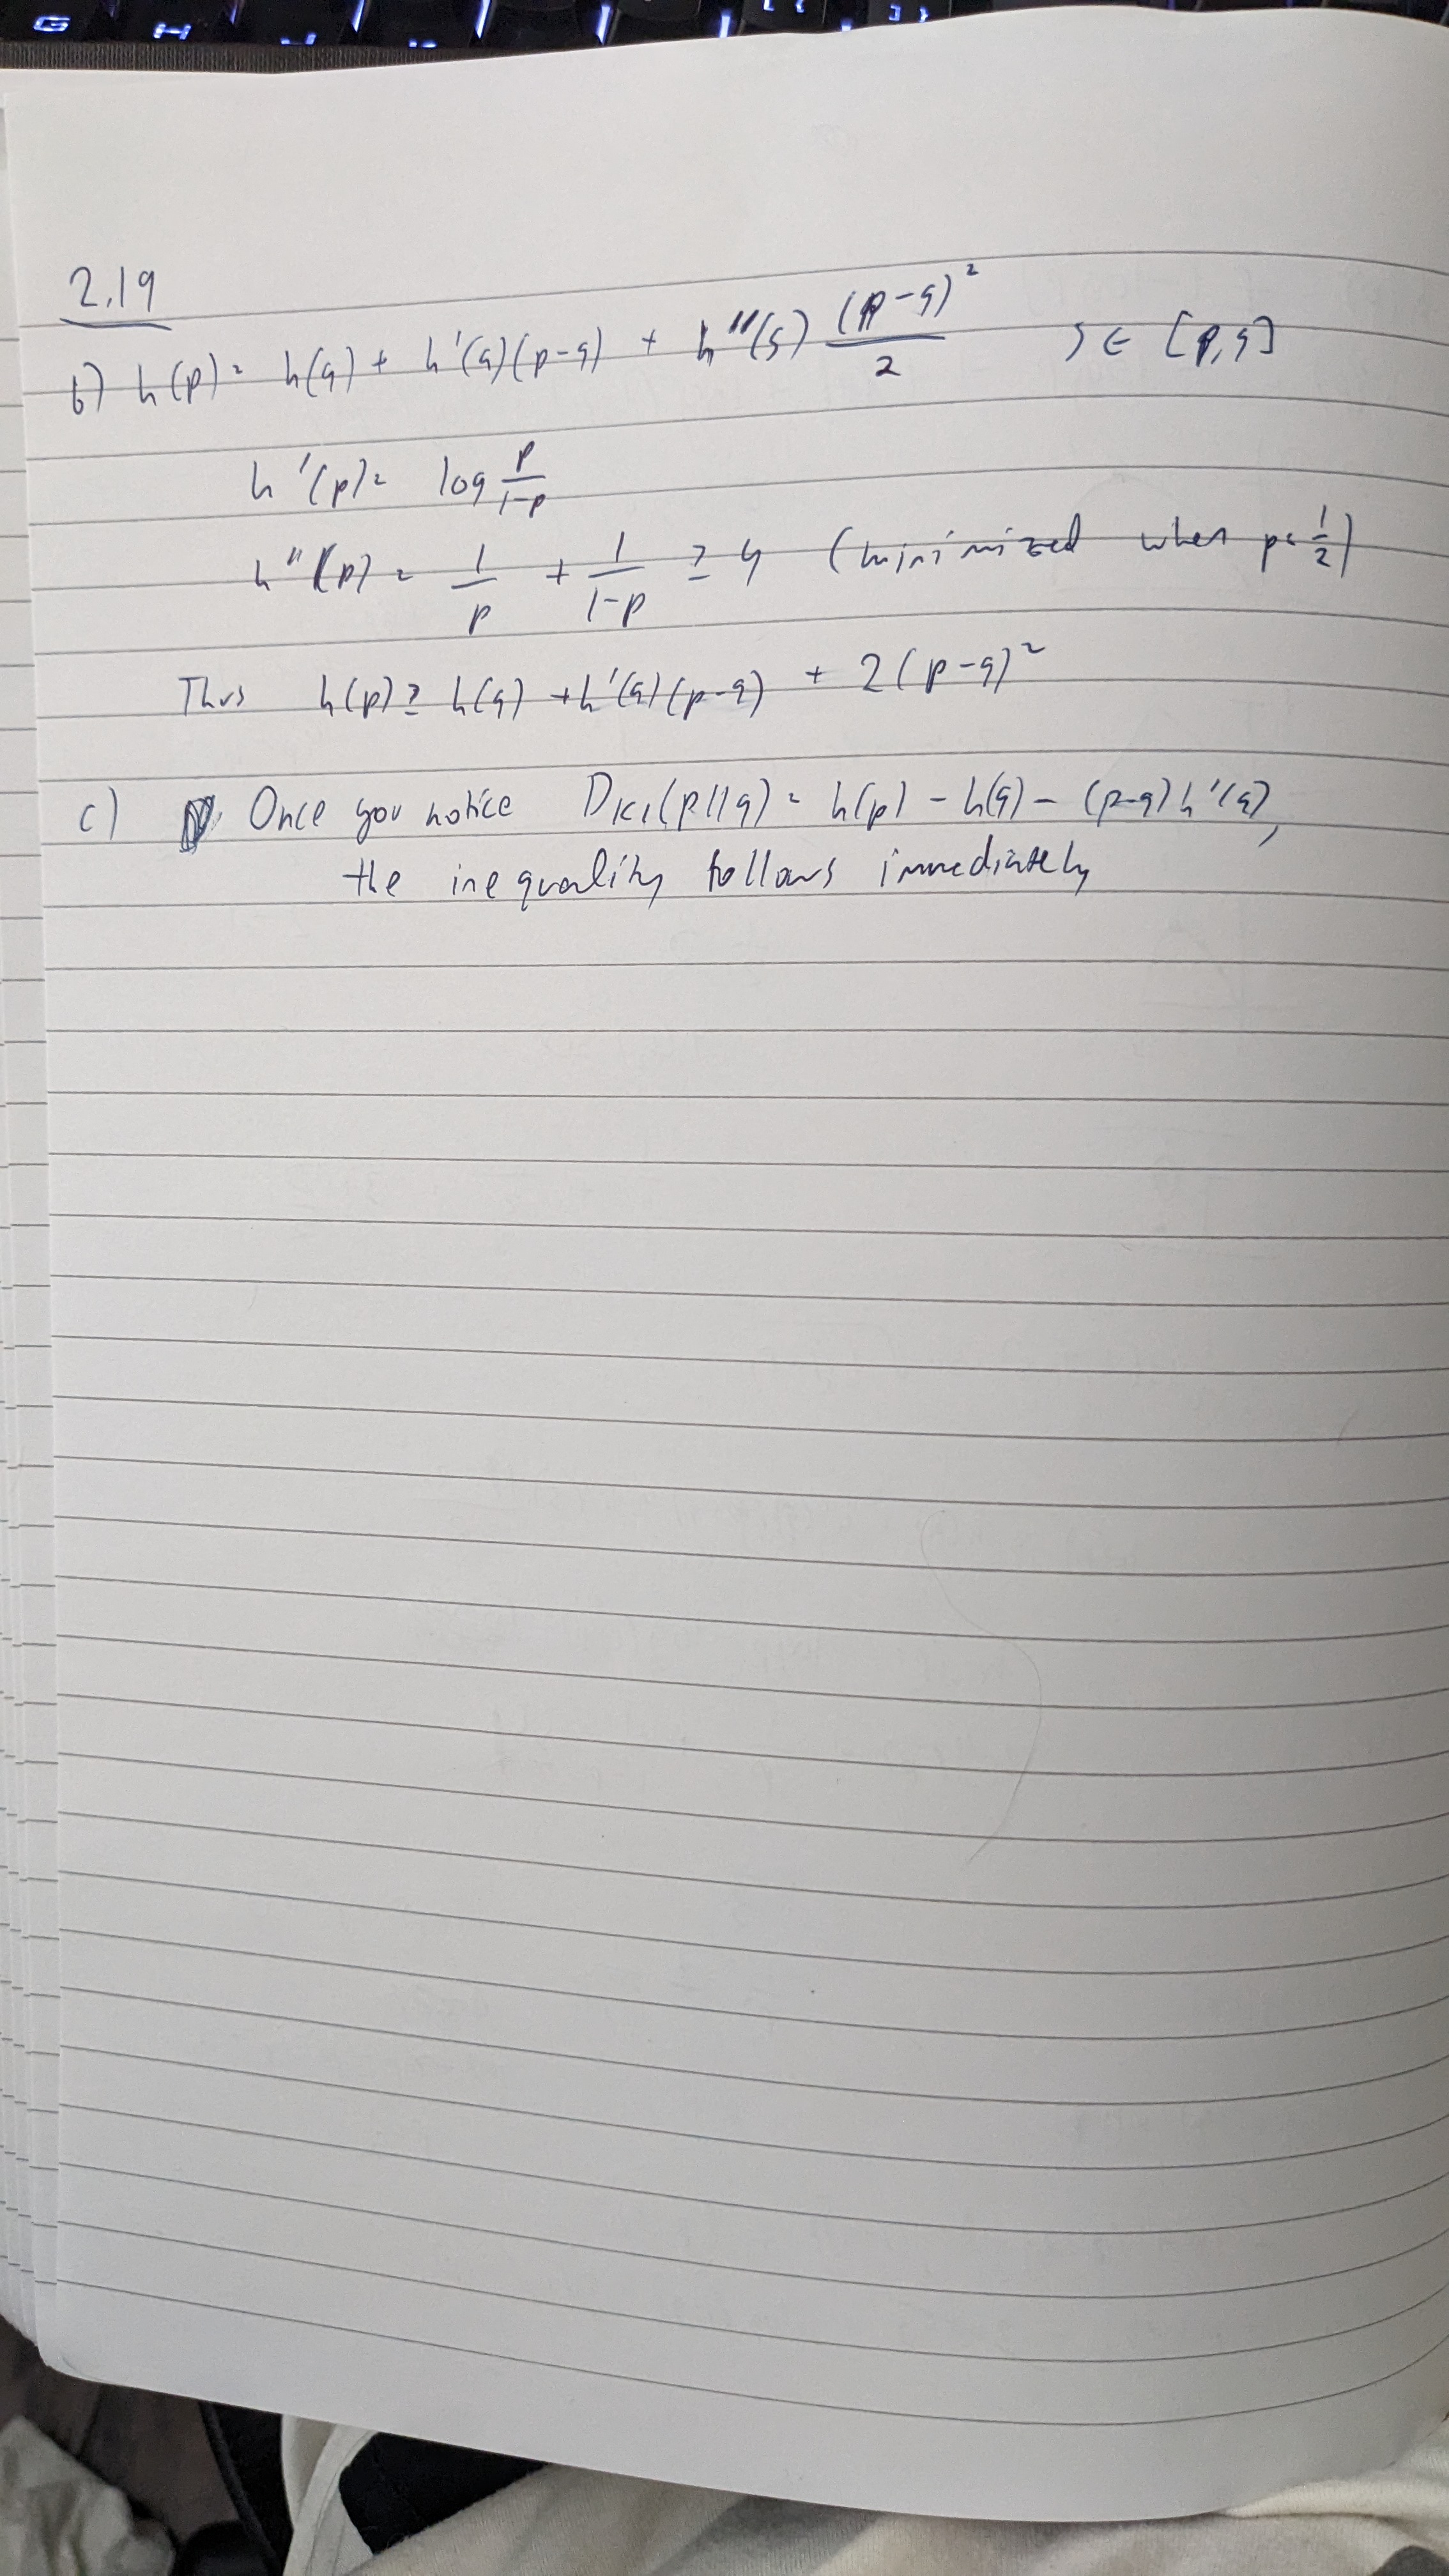 2.19
b) h(p) = h(q) + h'(q)(p-q) + h''(s) (p-q)²/2 s ∈ [p,q]
h'(p) = log p/1-p
h''(p) = 1/p + 1/1-p ≥ 4 (minimized when p = 1/2)
Thus h(p) ≥ h(q) + h'(q)(p-q) + 2(p-q)²
c) Once you notice D_KL(p||q) = h(p) - h(q) - (p-q)h'(q),
the inequality follows immediately